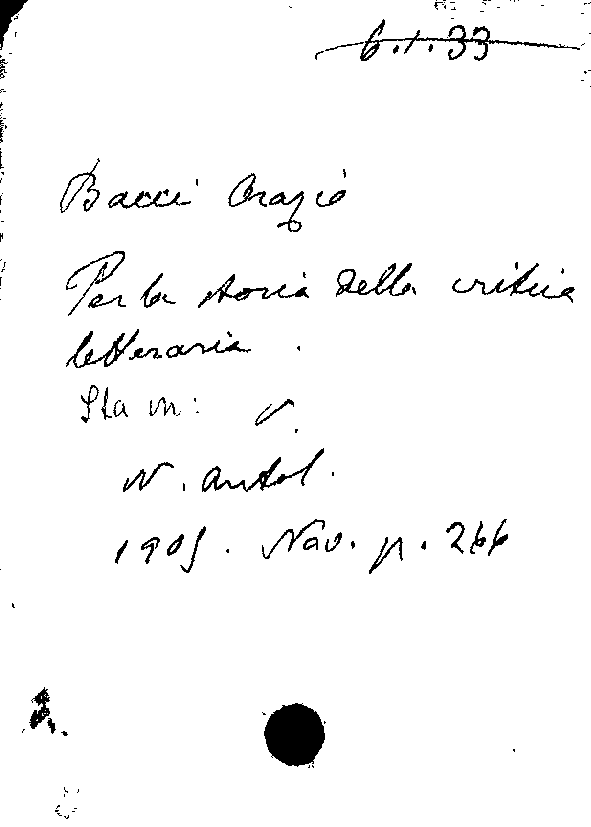 6.1.33
Bacci Orazio
Per la storia della critica
letteraria.
Sta in: v.
N. Antol.
1905. Nov. p. 266